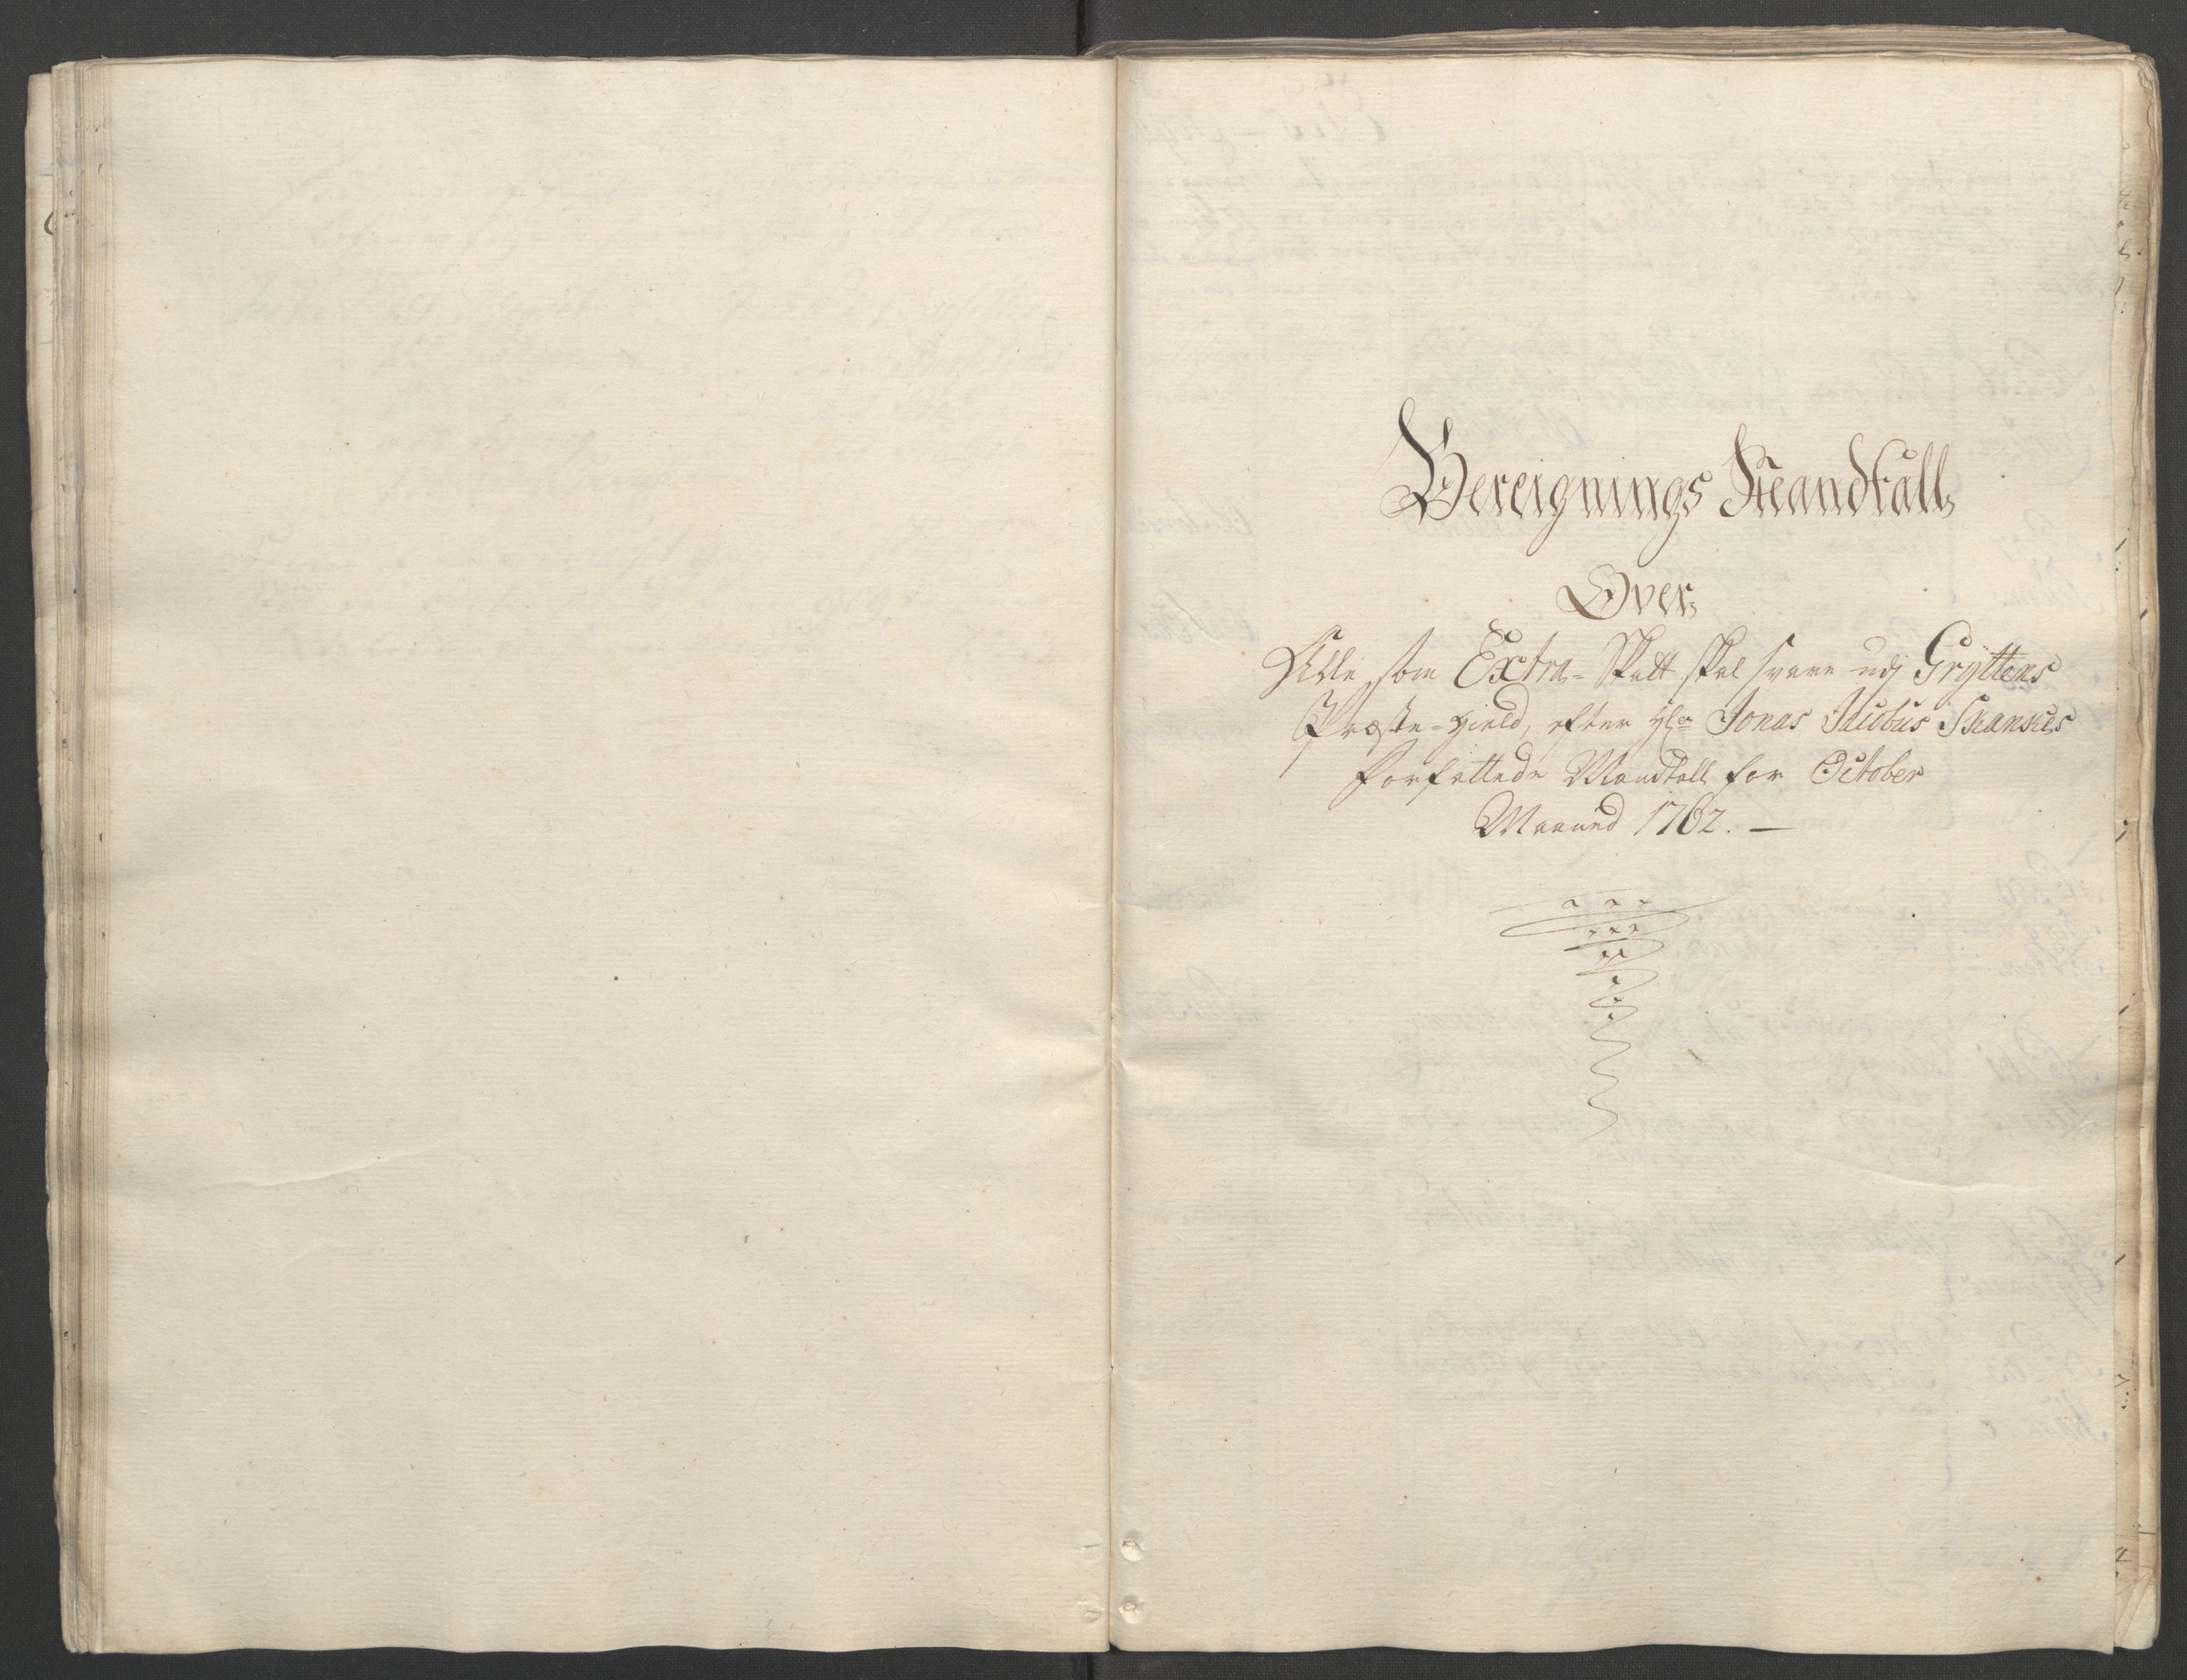 Bereignings Mandtall
Over
Alle som Extra-Skatt skal svare udj Gryttens
Præste-Gield, efter Hr Jonas Jacobus
forfattede Mandtall for October
Maaned 1762. —